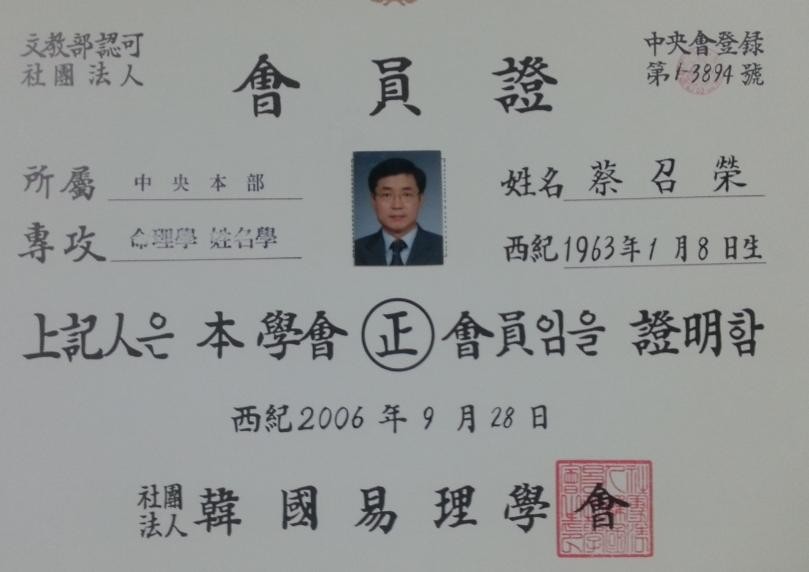 文敎部認可
社團法人
會員證
中央會登録
第1-3894號
所屬 中央本部
姓名 蔡召榮
專攻 命理學 姓名學
西紀1963年1月8日生
上記人은 本學會 正 會員임을 證明함
西紀2006年9月28日
社團
法人 韓國易理學會